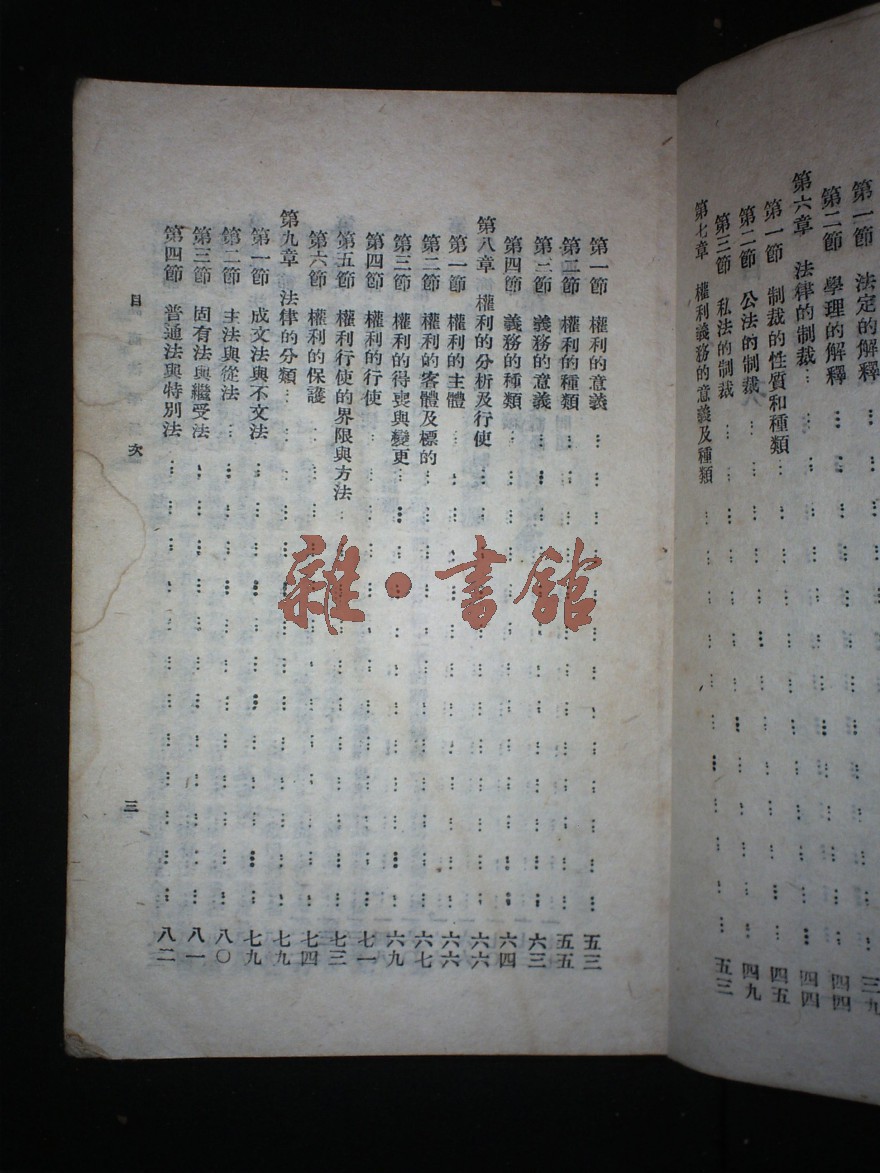 第一節 法定的解釋
第二節 學理的解釋 三九
第六章 法律的制裁 四四
第一節 制裁的性質和種類 四四
第二節 公法的制裁 四五
第三節 私法的制裁 四九
第七章 權利義務的意義及種類 五三
第一節 權利的意義 五三
第二節 權利的種類 五五
第三節 義務的意義 六三
第四節 義務的種類 六四
第八章 權利的分析及行使 六六
第一節 權利的主體 六六
第二節 權利的客體及標的 六七
第三節 權利的得喪與變更 六九
第四節 權利的行使 七一
第五節 權利行使的界限與方法 七三
第六節 權利的保護 七四
第九章 法律的分類 七九
第一節 成文法與不文法 七九
第二節 主法與從法 八〇
第三節 固有法與繼受法 八一
第四節 普通法與特別法 八二
目次 三
雜·書館